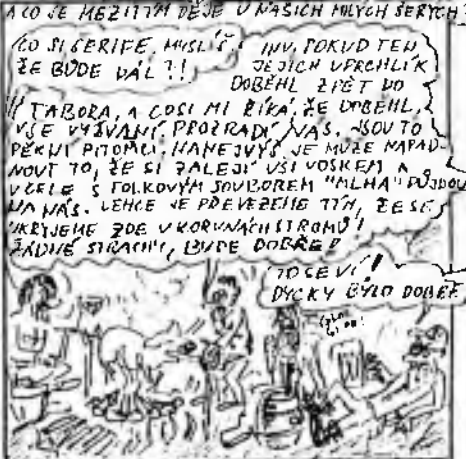 A CO SE MEZITÍM DĚJE U NAŠICH MILÝCH ŠERÝCH?
CO SI ŠERIFE, MYSLÍŠ,
ŽE BUDE DÁL?!
INU, POKUD TEN
JEJICH UPRCHLÍK
DOBĚHL ZPĚT DO
TÁBORA, A COSI MI ŘÍKÁ, ŽE DOBĚHL,
VŠE VYŽVANÍ, PROZRADÍ NÁS. JSOU TO
PĚKNÍ PITOMCI, NANEJVÝŠ JE MŮŽE NAPAD-
NOUT TO, ŽE SI ZALEJÍ UŠI VOSKEM A
V ČELE S FOLKOVÝM SOUBOREM "MLHA" PŮJDOU
NA NÁS. LEHCE JE PŘEVEZEME TÍM, ŽE SE
UKRYJEME ZDE V KORUNÁCH STROMŮ!
ŽÁDNÉ STRACHY, BUDE DOBŘE!
TO SE VÍ!
DYCKY BÝLO DOBŘE